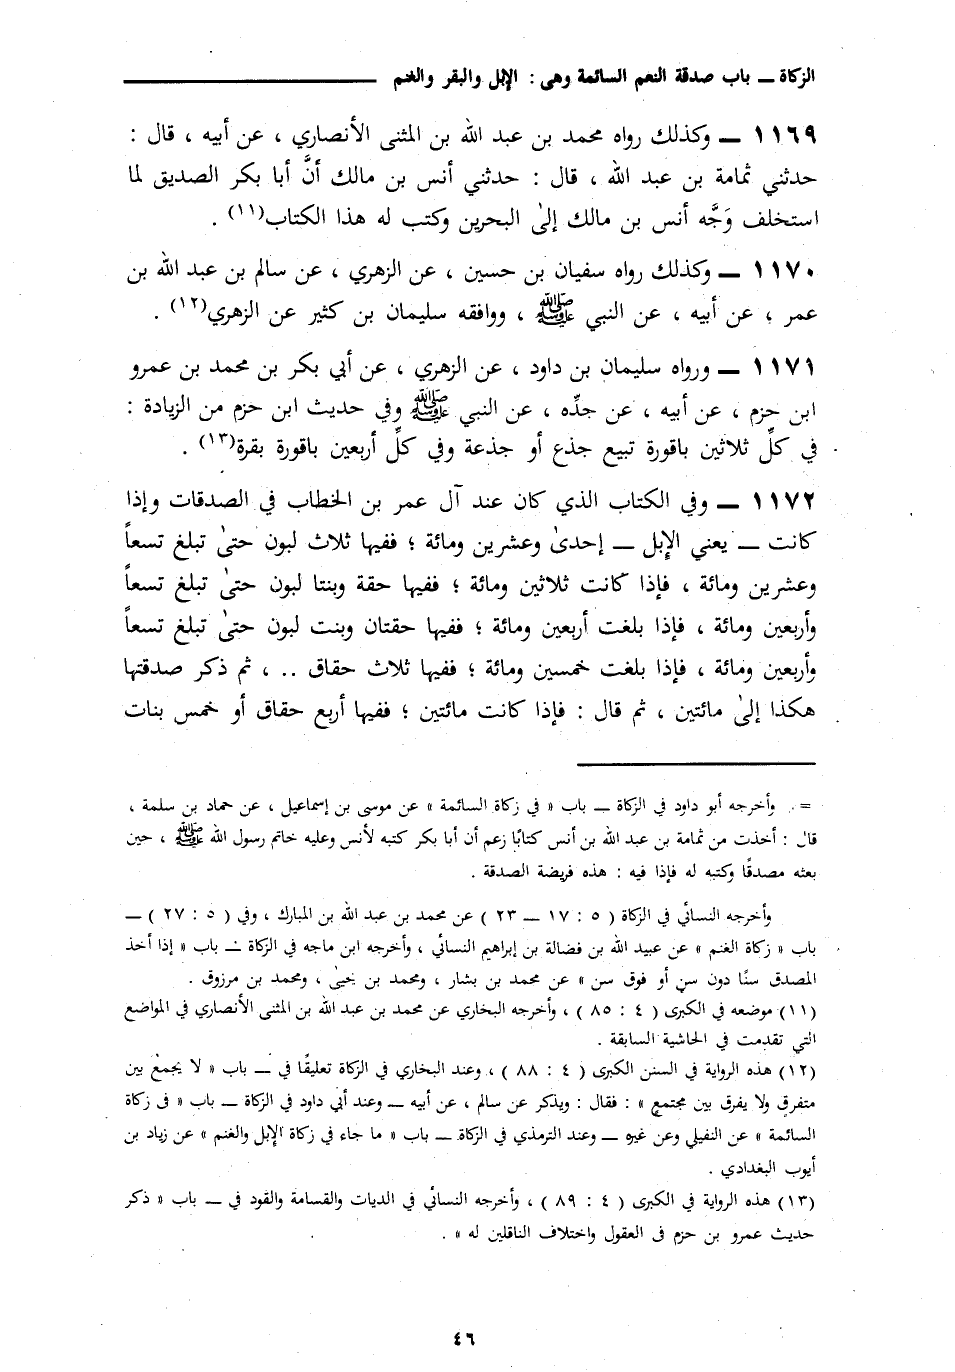 الزكاة ـــ باب صدقة النعم السائمة وهى : الإبل والبقر والغنم
١١٦٩ ـــ وكذلك رواه محمد بن عبد الله بن المثنى الأنصاري ، عن أبيه ، قال :
حدثني ثمامة بن عبد الله ، قال : حدثني أنس بن مالك أنَّ أبا بكر الصديق لما
استخلف وَجَّه أنس بن مالك إلىٰ البحرين وكتب له هذا الكتاب(١١) .
١١٧٠ ـــ وكذلك رواه سفيان بن حسين ، عن الزهري ، عن سالم بن عبد الله بن
عمر ، عن أبيه ، عن النبي ﷺ ، ووافقه سليمان بن كثير عن الزهري(١٢) .
١١٧١ ـــ ورواه سليمان بن داود ، عن الزهري ، عن أبي بكر بن محمد بن عمرو
ابن حزم ، عن أبيه ، عن جدِّه ، عن النبي ﷺ وفي حديث ابن حزم من الزيادة :
في كلِّ ثلاثين باقورة تبيع جذع أو جذعة وفي كلِّ أربعين باقورة بقرة(١٣) .
١١٧٢ ـــ وفي الكتاب الذي كان عند آل عمر بن الخطاب في الصدقات وإذا
كانت ـــ يعني الإبل ـــ إحدىٰ وعشرين ومائة ؛ ففيها ثلاث لبون حتىٰ تبلغ تسعاً
وعشرين ومائة ، فإذا كانت ثلاثين ومائة ؛ ففيها حقة وبنتا لبون حتىٰ تبلغ تسعاً
وأربعين ومائة ، فإذا بلغت أربعين ومائة ؛ ففيها حقتان وبنت لبون حتىٰ تبلغ تسعاً
وأربعين ومائة ، فإذا بلغت خمسين ومائة ؛ ففيها ثلاث حقاق .. ، ثم ذكر صدقتها
هكذا إلىٰ مائتين ، ثم قال : فإذا كانت مائتين ؛ ففيها أربع حقاق أو خمس بنات
= . وأخرجه أبو داود في الزكاة ـــ باب « في زكاة السائمة » عن موسى بن إسماعيل ، عن حماد بن سلمة ،
قال : أخذت من ثمامة بن عبد الله بن أنس كتابًا زعم أن أبا بكر كتبه لأنس وعليه خاتم رسول الله ﷺ ، حين
بعثه مصدقًا وكتبه له فإذا فيه : هذه فريضة الصدقة .
وأخرجه النسائي في الزكاة ( ٥ : ١٧ ـــ ٢٣ ) عن محمد بن عبد الله بن المبارك ، وفي ( ٥ : ٢٧ ) ـــ
باب « زكاة الغنم » عن عبيد الله بن فضالة بن إبراهيم النسائي ، وأخرجه ابن ماجه في الزكاة ـــ باب « إذا أخذ
المصدق سنًا دون سن أو فوق سن » عن محمد بن بشار ، ومحمد بن يحيىٰ ، ومحمد بن مرزوق .
(١١) موضعه في الكبرى ( ٤ : ٨٥ ) ، وأخرجه البخاري عن محمد بن عبد الله بن المثنى الأنصاري في المواضع
التي تقدمت في الحاشية السابقة .
(١٢) هذه الرواية في السنن الكبرى ( ٤ : ٨٨ ) ، وعند البخاري في الزكاة تعليقًا في ـــ باب « لا يجمع بين
متفرق ولا يفرق بين مجتمع » : فقال : ويذكر عن سالم ، عن أبيه ـــ وعند أبي داود في الزكاة ـــ باب « فى زكاة
السائمة » عن النفيلي وعن غيره ـــ وعند الترمذي في الزكاة ـــ باب « ما جاء في زكاة الإبل والغنم » عن زياد بن
أيوب البغدادي .
(١٣) هذه الرواية في الكبرى ( ٤ : ٨٩ ) ، وأخرجه النسائي في الديات والقسامة والقود في ـــ باب « ذكر
حديث عمرو بن حزم فى العقول واختلاف الناقلين له » .
٤٦